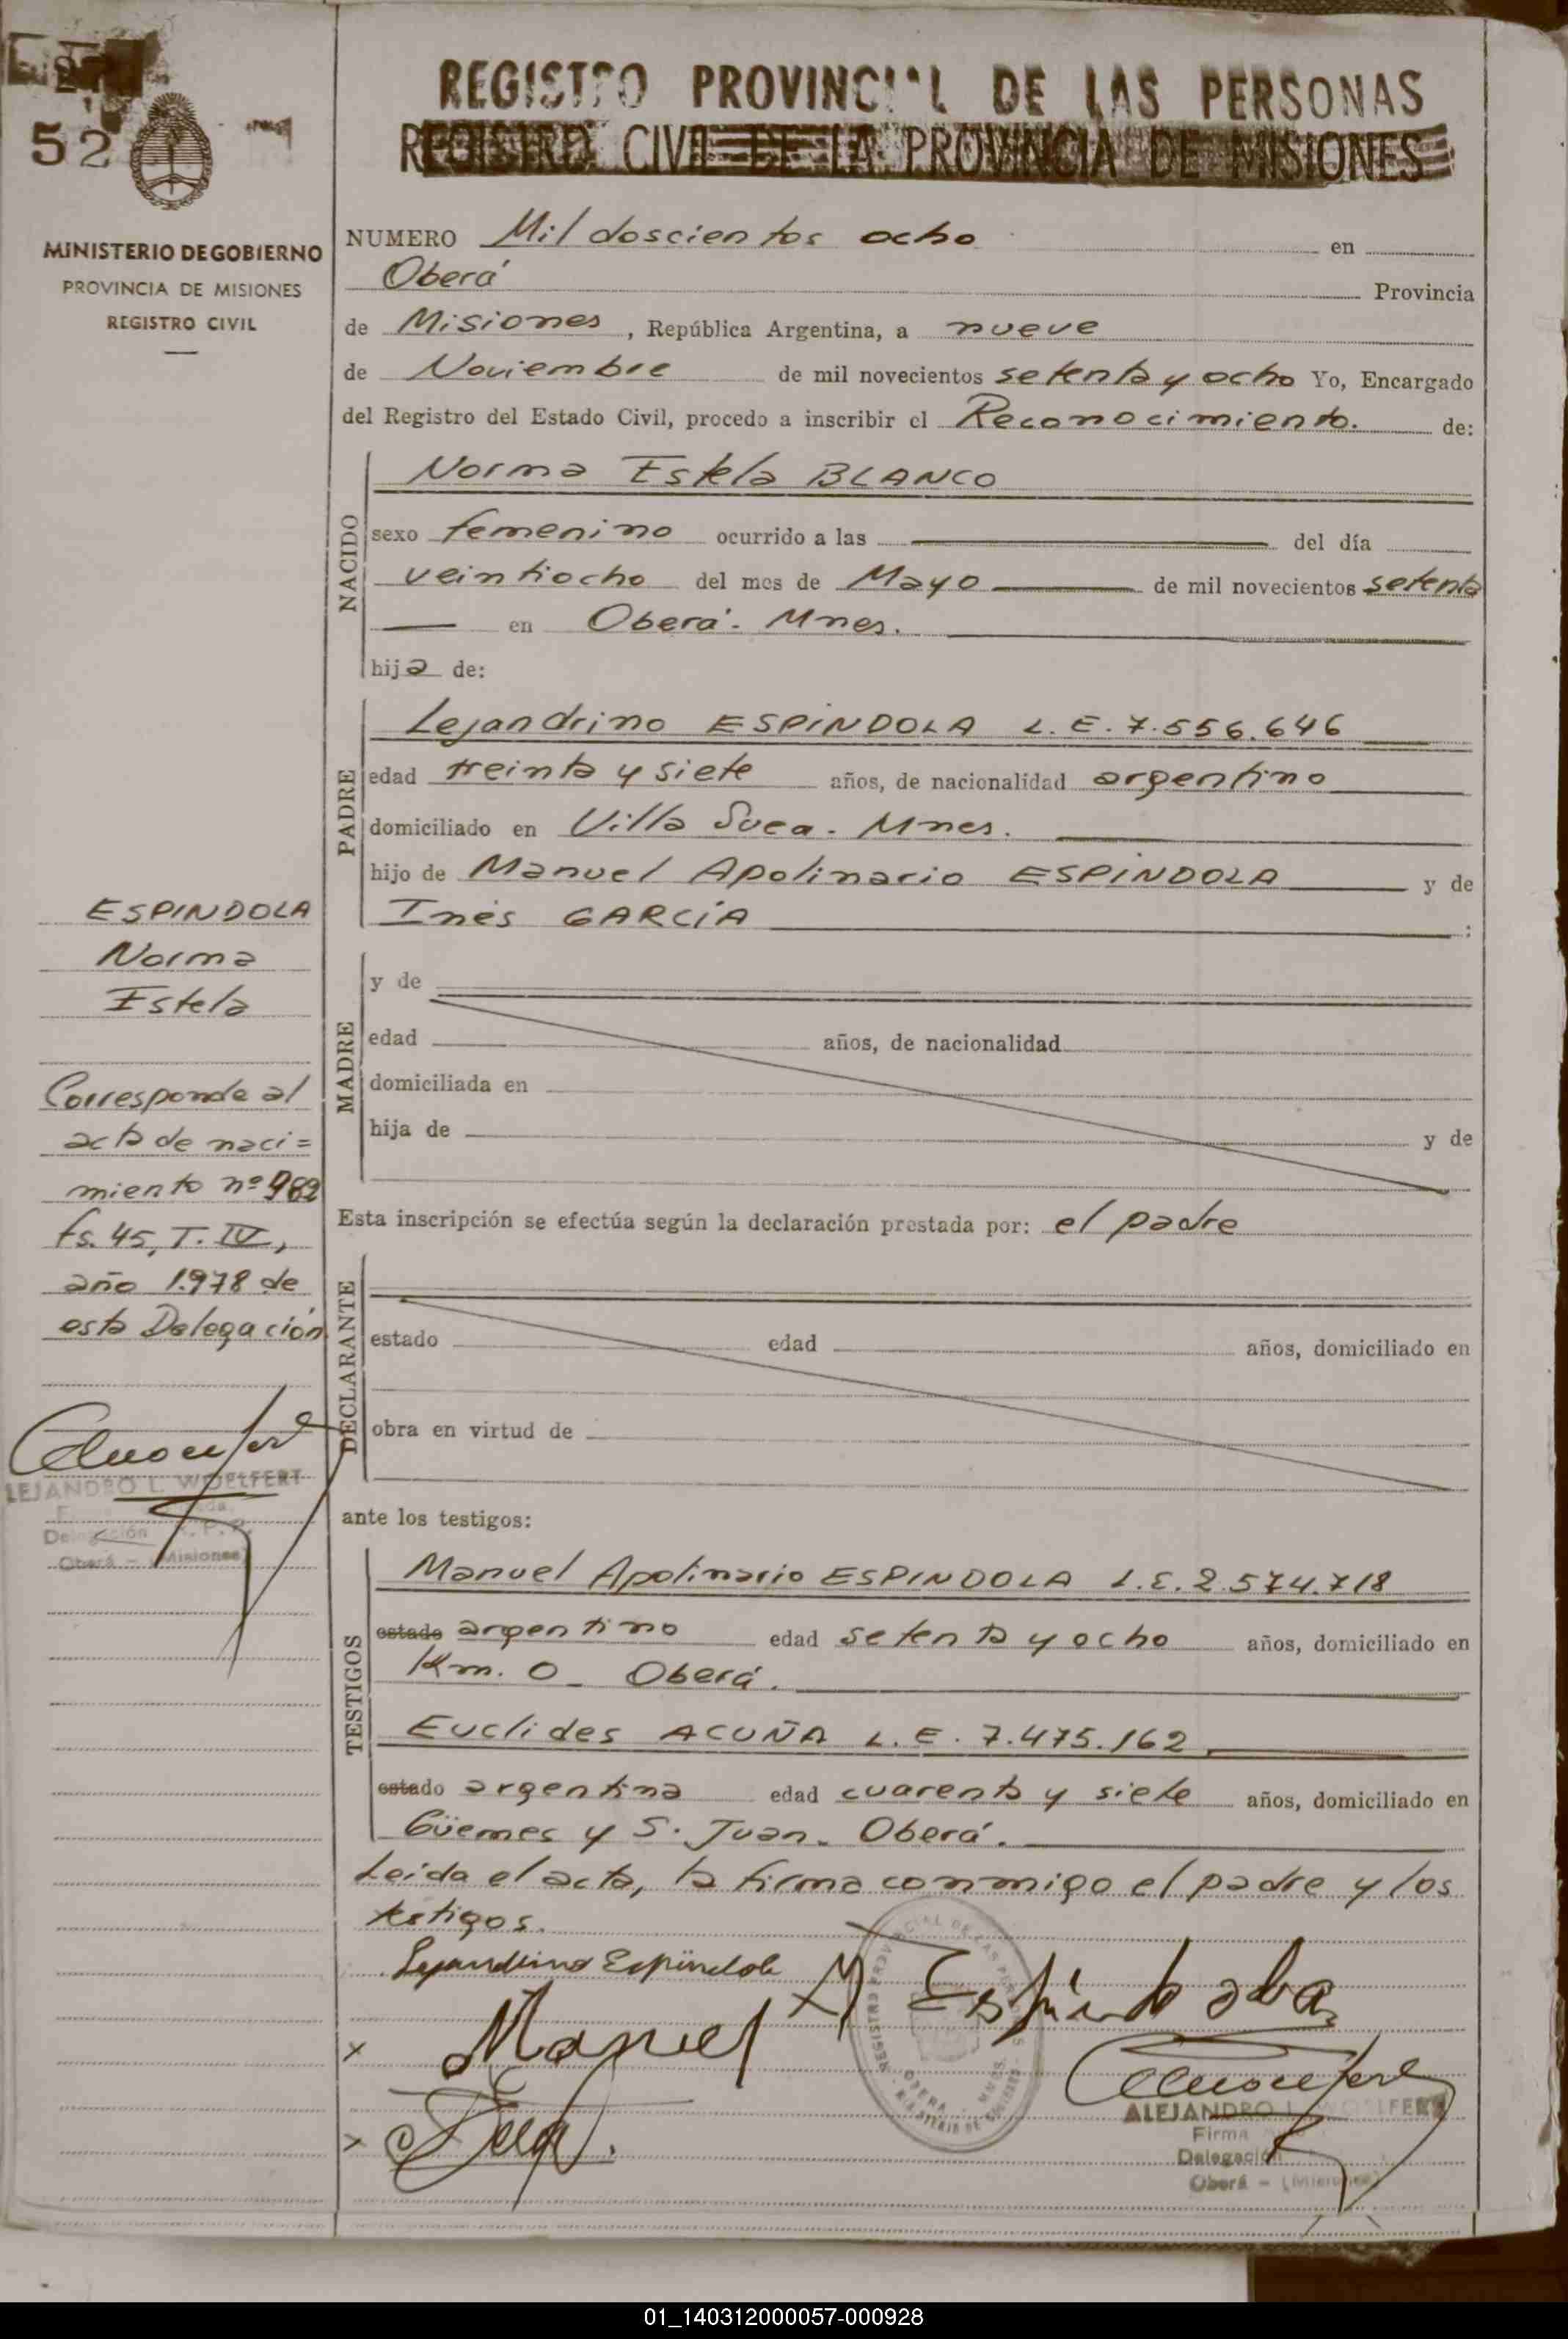 52
MINISTERIO DE GOBIERNO
PROVINCIA DE MISIONES
REGISTRO CIVIL
ESPINDOLA
Norma
Estela
Corresponde al
acta de naci=
miento nº 982
fs. 45, T. IV,
año 1.978 de
esta Delegación
LEJANDRO L. WOELFERT
Delegación R. P. P.
Oberá - (Misiones)
REGISTRO PROVINCIAL DE LAS PERSONAS
REGISTRO CIVIL DE LA PROVINCIA DE MISIONES
NUMERO Mil doscientos ocho en
Oberá Provincia
de Misiones, República Argentina, a nueve
de Noviembre de mil novecientos setenta y ocho Yo, Encargado
del Registro del Estado Civil, procedo a inscribir el Reconocimiento. de:
NACIDO
Norma Estela BLANCO
sexo femenino ocurrido a las del día
veintiocho del mes de Mayo de mil novecientos setenta
en Oberá. Mnes.
hija de:
PADRE
Lejandrino ESPÍNDOLA L.E. 7.556.646
edad treinta y siete años, de nacionalidad argentino
domiciliado en Villa Svea. Mnes.
hijo de Manuel Apolinario ESPÍNDOLA y de
Inés GARCÍA :
MADRE
y de
edad años, de nacionalidad
domiciliada en
hija de y de
Esta inscripción se efectúa según la declaración prestada por: el padre
DECLARANTE
estado edad años, domiciliado en
obra en virtud de
ante los testigos:
TESTIGOS
Manuel Apolinario ESPINDOLA L.E. 2.574.718
estado argentino edad setenta y ocho años, domiciliado en
Km. 0 - Oberá.
Euclides ACUÑA L.E. 7.475.162
estado argentina edad cuarenta y siete años, domiciliado en
Güemes y S. Juan. Oberá.
Leida el acta, la firma conmigo el padre y los
testigos.
Lejandrino Espíndola
x Manuel A Espindola
x
ALEJANDRO L. WOELFERT
Firma
Delegación
Oberá - (Misiones)
01_140312000057-000928